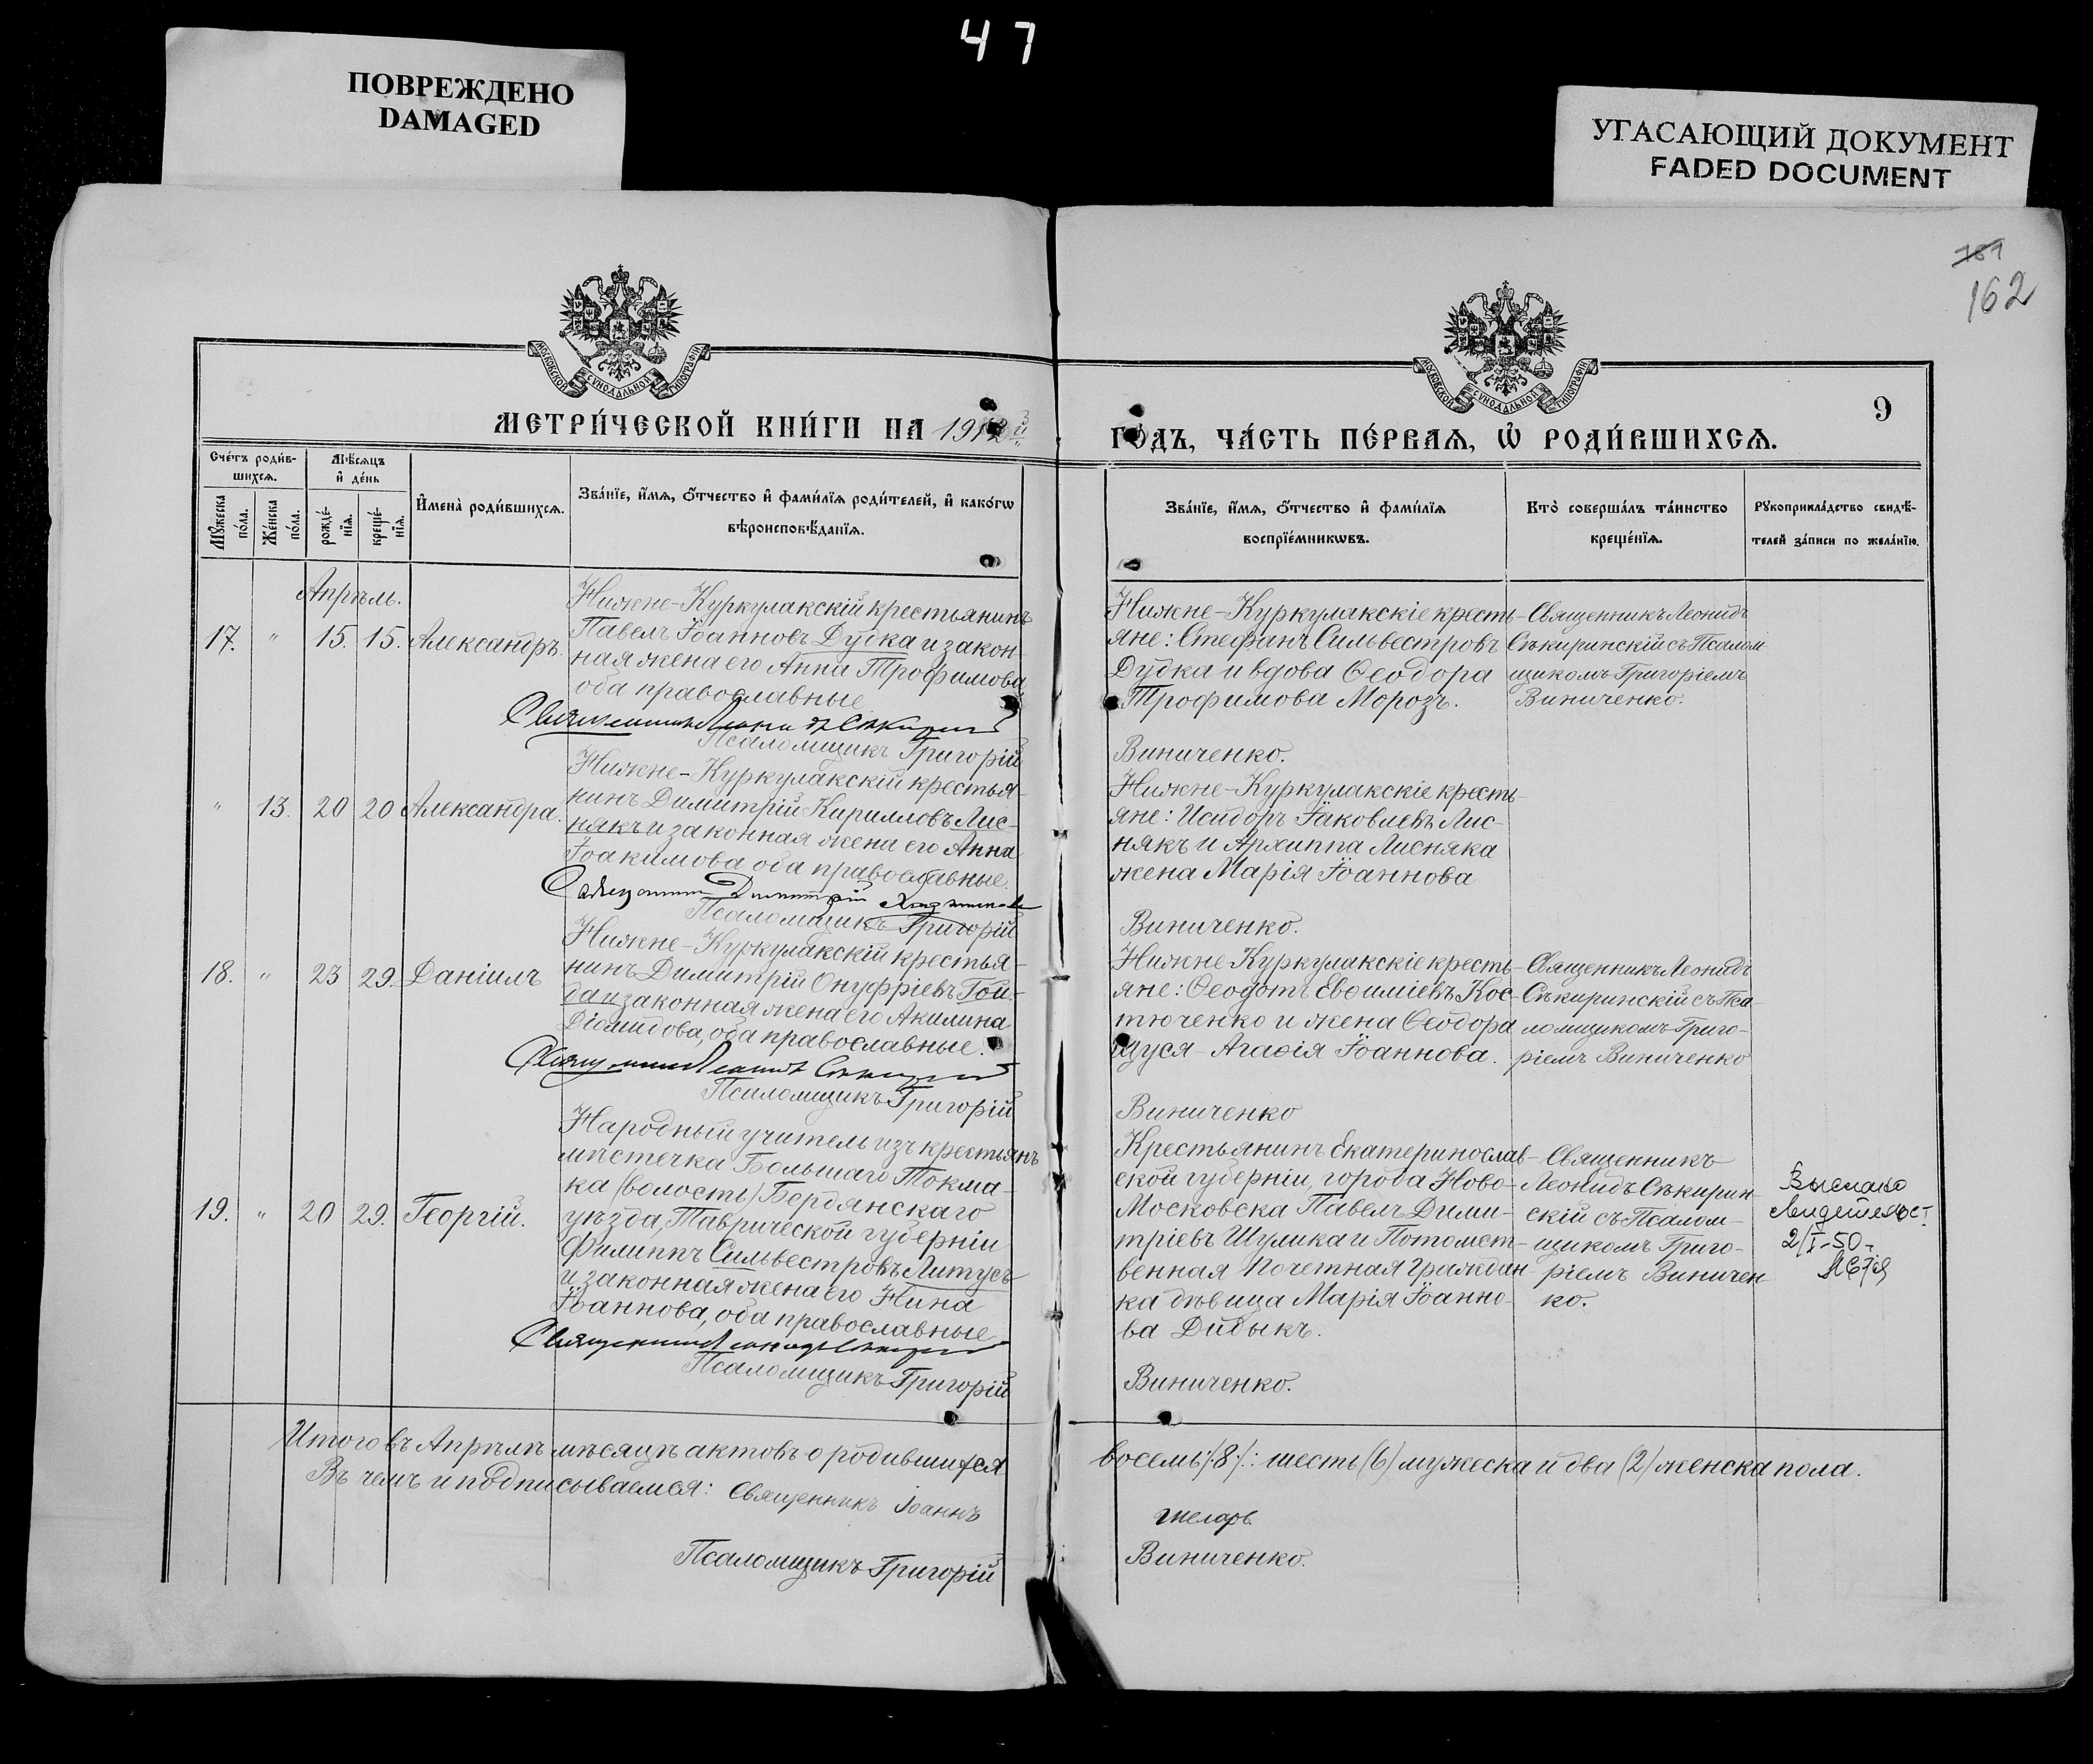 47
ПОВРЕЖДЕНО
DAMAGED
УГАСАЮЩИЙ ДОКУМЕНТ
FADED DOCUMENT
162
МОСКОВСКОЙ СѴНОДАЛЬНОЙ ТИПОГРАФІИ
МОСКОВСКОЙ СѴНОДАЛЬНОЙ ТИПОГРАФІИ
МЕТРИ́ЧЕСКОЙ КНИ́ГИ НА 191
ГОДЪ, ЧА́СТЬ ПЕ́РВАѦ, Ѡ҆ РОДИ́ВШИХСѦ.
9
Сче́тъ роди́в-
шихсѧ.
Мѣ́сѧцъ
и҆ де́нь
Мꙋ́жеска
по́ла.
Же́нска
по́ла.
рожде́-
нїѧ.
креще́-
нїѧ.
И҆мена̀ роди́вшихсѧ.
Зва́нїе, и҆́мѧ, ѻ҆́тчество и҆ фами́лїѧ роди́телей, и҆ како́гѡ
вѣроисповѣ́данїѧ.
Зва́нїе, и҆́мѧ, ѻ҆́тчество и҆ фами́лїѧ
воспрїе́мникѡвъ.
Кто̀ соверша́лъ та́инство
креще́нїѧ.
Рꙋкоприкла́дство свидѣ́-
телей за́писи по жела́нїю.
Апрѣль.
17. " 15. 15. Александръ.
Нижне-Куркулакскій крестьянинъ
Павелъ Іоанновъ Дудка и закон-
ная жена его Анна Трофимова
оба православные
Псаломщикъ Григорій
Нижне-Куркулакскіе кресть-
яне: Стефанъ Сильвестровъ
Дудка и вдова Ѳеодора
Трофимова Морозъ.
Виниченко.
Священникъ Леонидъ
Сѣкиринскій съ Псалом
щикомъ Григоріемъ
Виниченко.
" 13. 20 20 Александра.
Нижне-Куркулакскій крестья-
нинъ Димитрій Кирилловъ Лис-
някъ и законная жена его Анна
Іоакимова оба православные.
Псаломщикъ Григорій
Нижне-Куркулакскіе кресть-
яне: Исидоръ Іаковлевъ Лис-
някъ и Архиппа Лисняка
жена Марія Іоаннова
Виниченко.
18. " 23 29. Даніилъ
Нижне-Куркулакскій крестья-
нинъ Димитрій Онуфріевъ Гой-
да и законная жена его Акилина
Діомидова, оба православные.
Псаломщикъ Григорій
Нижне Куркулакскіе кресть-
яне: Ѳеодотъ Евѳиміевъ Кос-
тюченко и жена Ѳеодора
Агаѳія Іоаннова.
Виниченко
Священникъ Леонидъ
Сѣкиринскій съ Пса-
ломщикомъ Григо-
ріемъ Виниченко
19. " 20 29. Георгій.
Народный учитель изъ крестьянъ
мѣстечка Большаго Токма-
ка (волость) Бердянскаго
уѣзда, Таврической губерніи
Филиппъ Сильвестровъ Литусъ
и законная жена его Нина
Іоаннова, оба православные
Псаломщикъ Григорій
Крестьянинъ Екатеринослав-
ской губерніи, города Ново-
Московска Павелъ Дими-
тріевъ Шулика и Потомст-
венная Почетная Граждан-
ка дѣвица Марія Іоанно-
ва Дидыкъ.
Виниченко.
Священникъ
Леонидъ Сѣкирин-
скій съ Псалом-
щикомъ Григо-
ріемъ Виничен
ко.
Выслано
свидетельст
2/I-50-
Итого въ Апрѣлѣ мѣсяцѣ актовъ о родившихся
восемь /8/: шесть (6) мужеска и два (2) женска пола.
Въ чемъ и подписываемся: Священникъ Іоаннъ
Псаломщикъ Григорій
Виниченко.